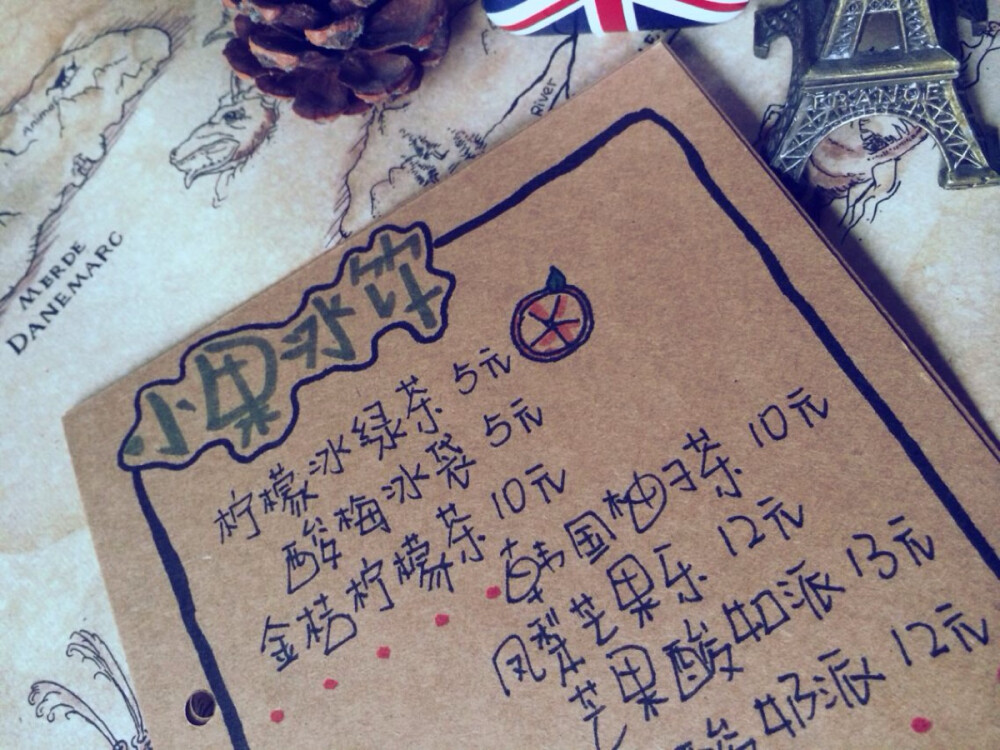 小果冰饮
柠檬冰绿茶 5元
酸梅冰袋 5元
金桔柠檬茶 10元
韩国柚子茶 10元
凤梨芒果乐 12元
芒果酸奶派 13元
酸奶派 12元
MERDE
DANEMARC
River
FRANCE